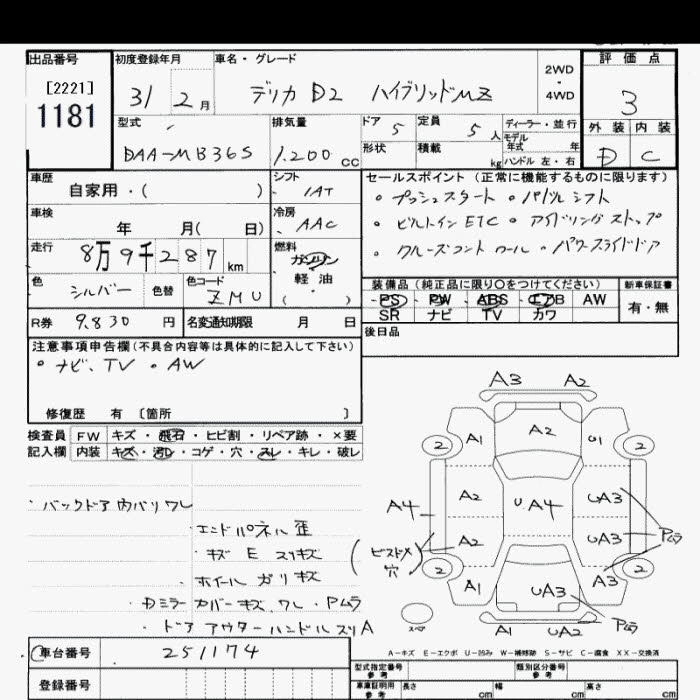 出品番号
[2221]
1181
初度登録年月
31 2月
車名・グレード
デリカ D2 ハイブリッドMZ
2WD
・
4WD
評価点
3
外装 内装
D C
型式
DAA-MB36S
排気量
1,200 cc
ドア 5
定員 5人
ディーラー・並行
モデル
年式 年
形状
積載 kg
ハンドル 左・右
車歴
自家用・( )
シフト
IAT
セールスポイント (正常に機能するものに限ります)
・プッシュスタート ・パドルシフト
・ビルトインETC ・アイドリングストップ
・クルーズコントロール ・パワースライドドア
車検
年 月( 日)
冷房
AAC
走行
8万9千287km
燃料
ガソリン
軽油
( )
色 シルバー 色替
色コード
ZMU
装備品 (純正品に限り〇をつけてください)
PS PW ABS エアB AW
SR ナビ TV カワ
新車保証書
有・無
R券 9.830 円
名変通知期限 月 日
後日品
注意事項申告欄(不具合内容等は具体的に記入して下さい)
・ナビ、TV ・AW
修復歴 有 〔箇所 〕
検査員
記入欄
FW キズ・飛石・ヒビ割・リペア跡・×要
内装 キズ・汚レ・コゲ・穴・スレ・キレ・破レ
・バックドア内バリワレ
・エンドパネル歪
・キズ E スリキズ
・ホイールガリキズ
・Dミラーカバーキズ、ワレ・Pムラ
・ドアアウターハンドルスリA
A3 A2
A1 A2 U1
2 2
A4 A2 U A4 UA3 Pムラ
(ビスドメ穴) A2 UA3
2 2
A1 UA3 A3
スペア
A1 UA2 Pムラ
A－キズ E－エクボ U－凹み W－補修跡 S－サビ C－腐食 XX－交換済
車台番号
251174
登録番号
型式指定番号
参考
類別区分番号
参考
車庫証明用
参考
長さ cm 幅 cm 高さ cm